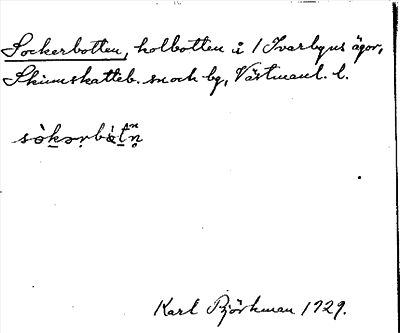 Sockerbotten, holbotten i / Ivarbyns ägor,
Skinnskatteb. sn och bg, Västmanl. l.
sòkərbòtn̥
Karl Björkman 1929.